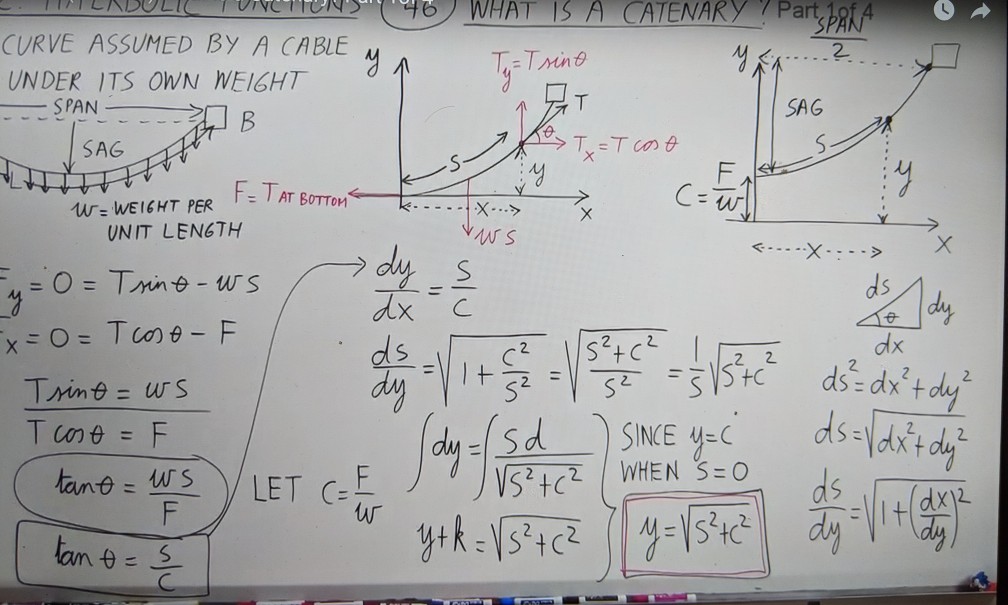 2. HYPERBOLIC FUNCTIONS 46 WHAT IS A CATENARY? Part 1 of 4
CURVE ASSUMED BY A CABLE
UNDER ITS OWN WEIGHT
SPAN
B
SAG
w = WEIGHT PER
UNIT LENGTH
y
T_y = T sin θ
T
θ
T_x = T cos θ
S
y
F = T AT BOTTOM
x
x
WS
SPAN
2
y
SAG
S
C = F/w
y
x
x
F_y = 0 = T sin θ - WS
F_x = 0 = T cos θ - F
T sin θ = WS
T cos θ = F
tan θ = WS/F
tan θ = S/C
LET C = F/w
dy/dx = S/C
ds/dy = √(1 + C²/S²) = √((S²+C²)/S²) = 1/S √(S²+C²)
∫dy = ∫ Sd/√(S²+C²)
y+k = √(S²+C²)
SINCE y=C
WHEN S=0
y = √(S²+C²)
ds
dy
θ
dx
ds² = dx² + dy²
ds = √(dx² + dy²)
ds/dy = √(1 + (dx/dy)²)